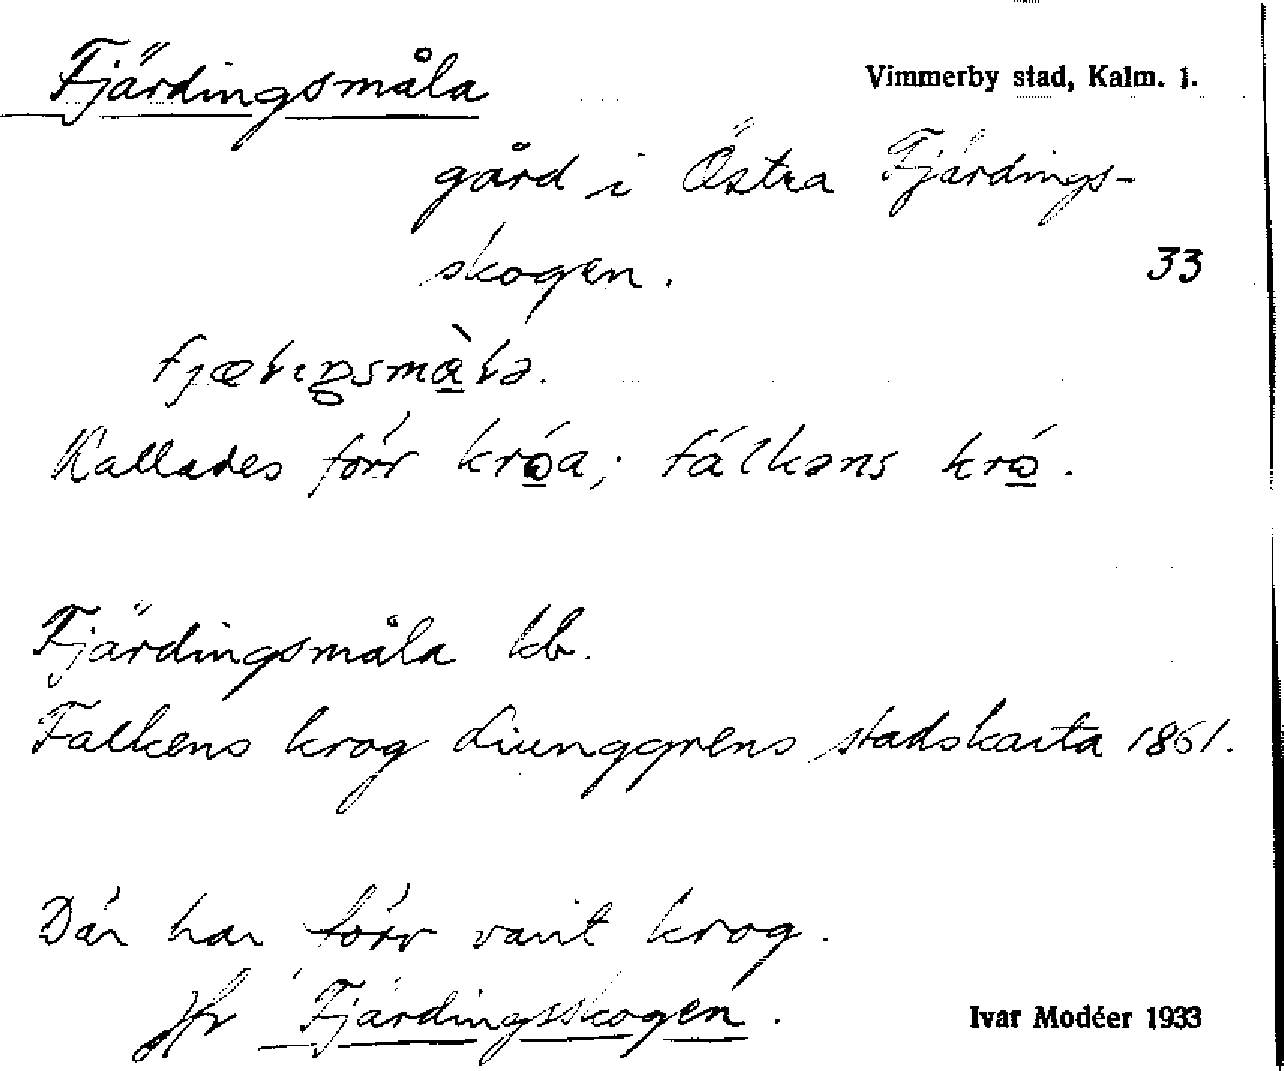 Fjärdingsmåla
Vimmerby stad, Kalm. l.
gård i Östra Fjärdings-
skogen.
33
Kallades förr króa; fálkəns kró.
Fjärdingsmåla kb.
Falkens krog Liunggrens stadskarta 1861.
Där har förr varit krog.
Jfr Fjärdingsskogen.
Ivar Modéer 1933